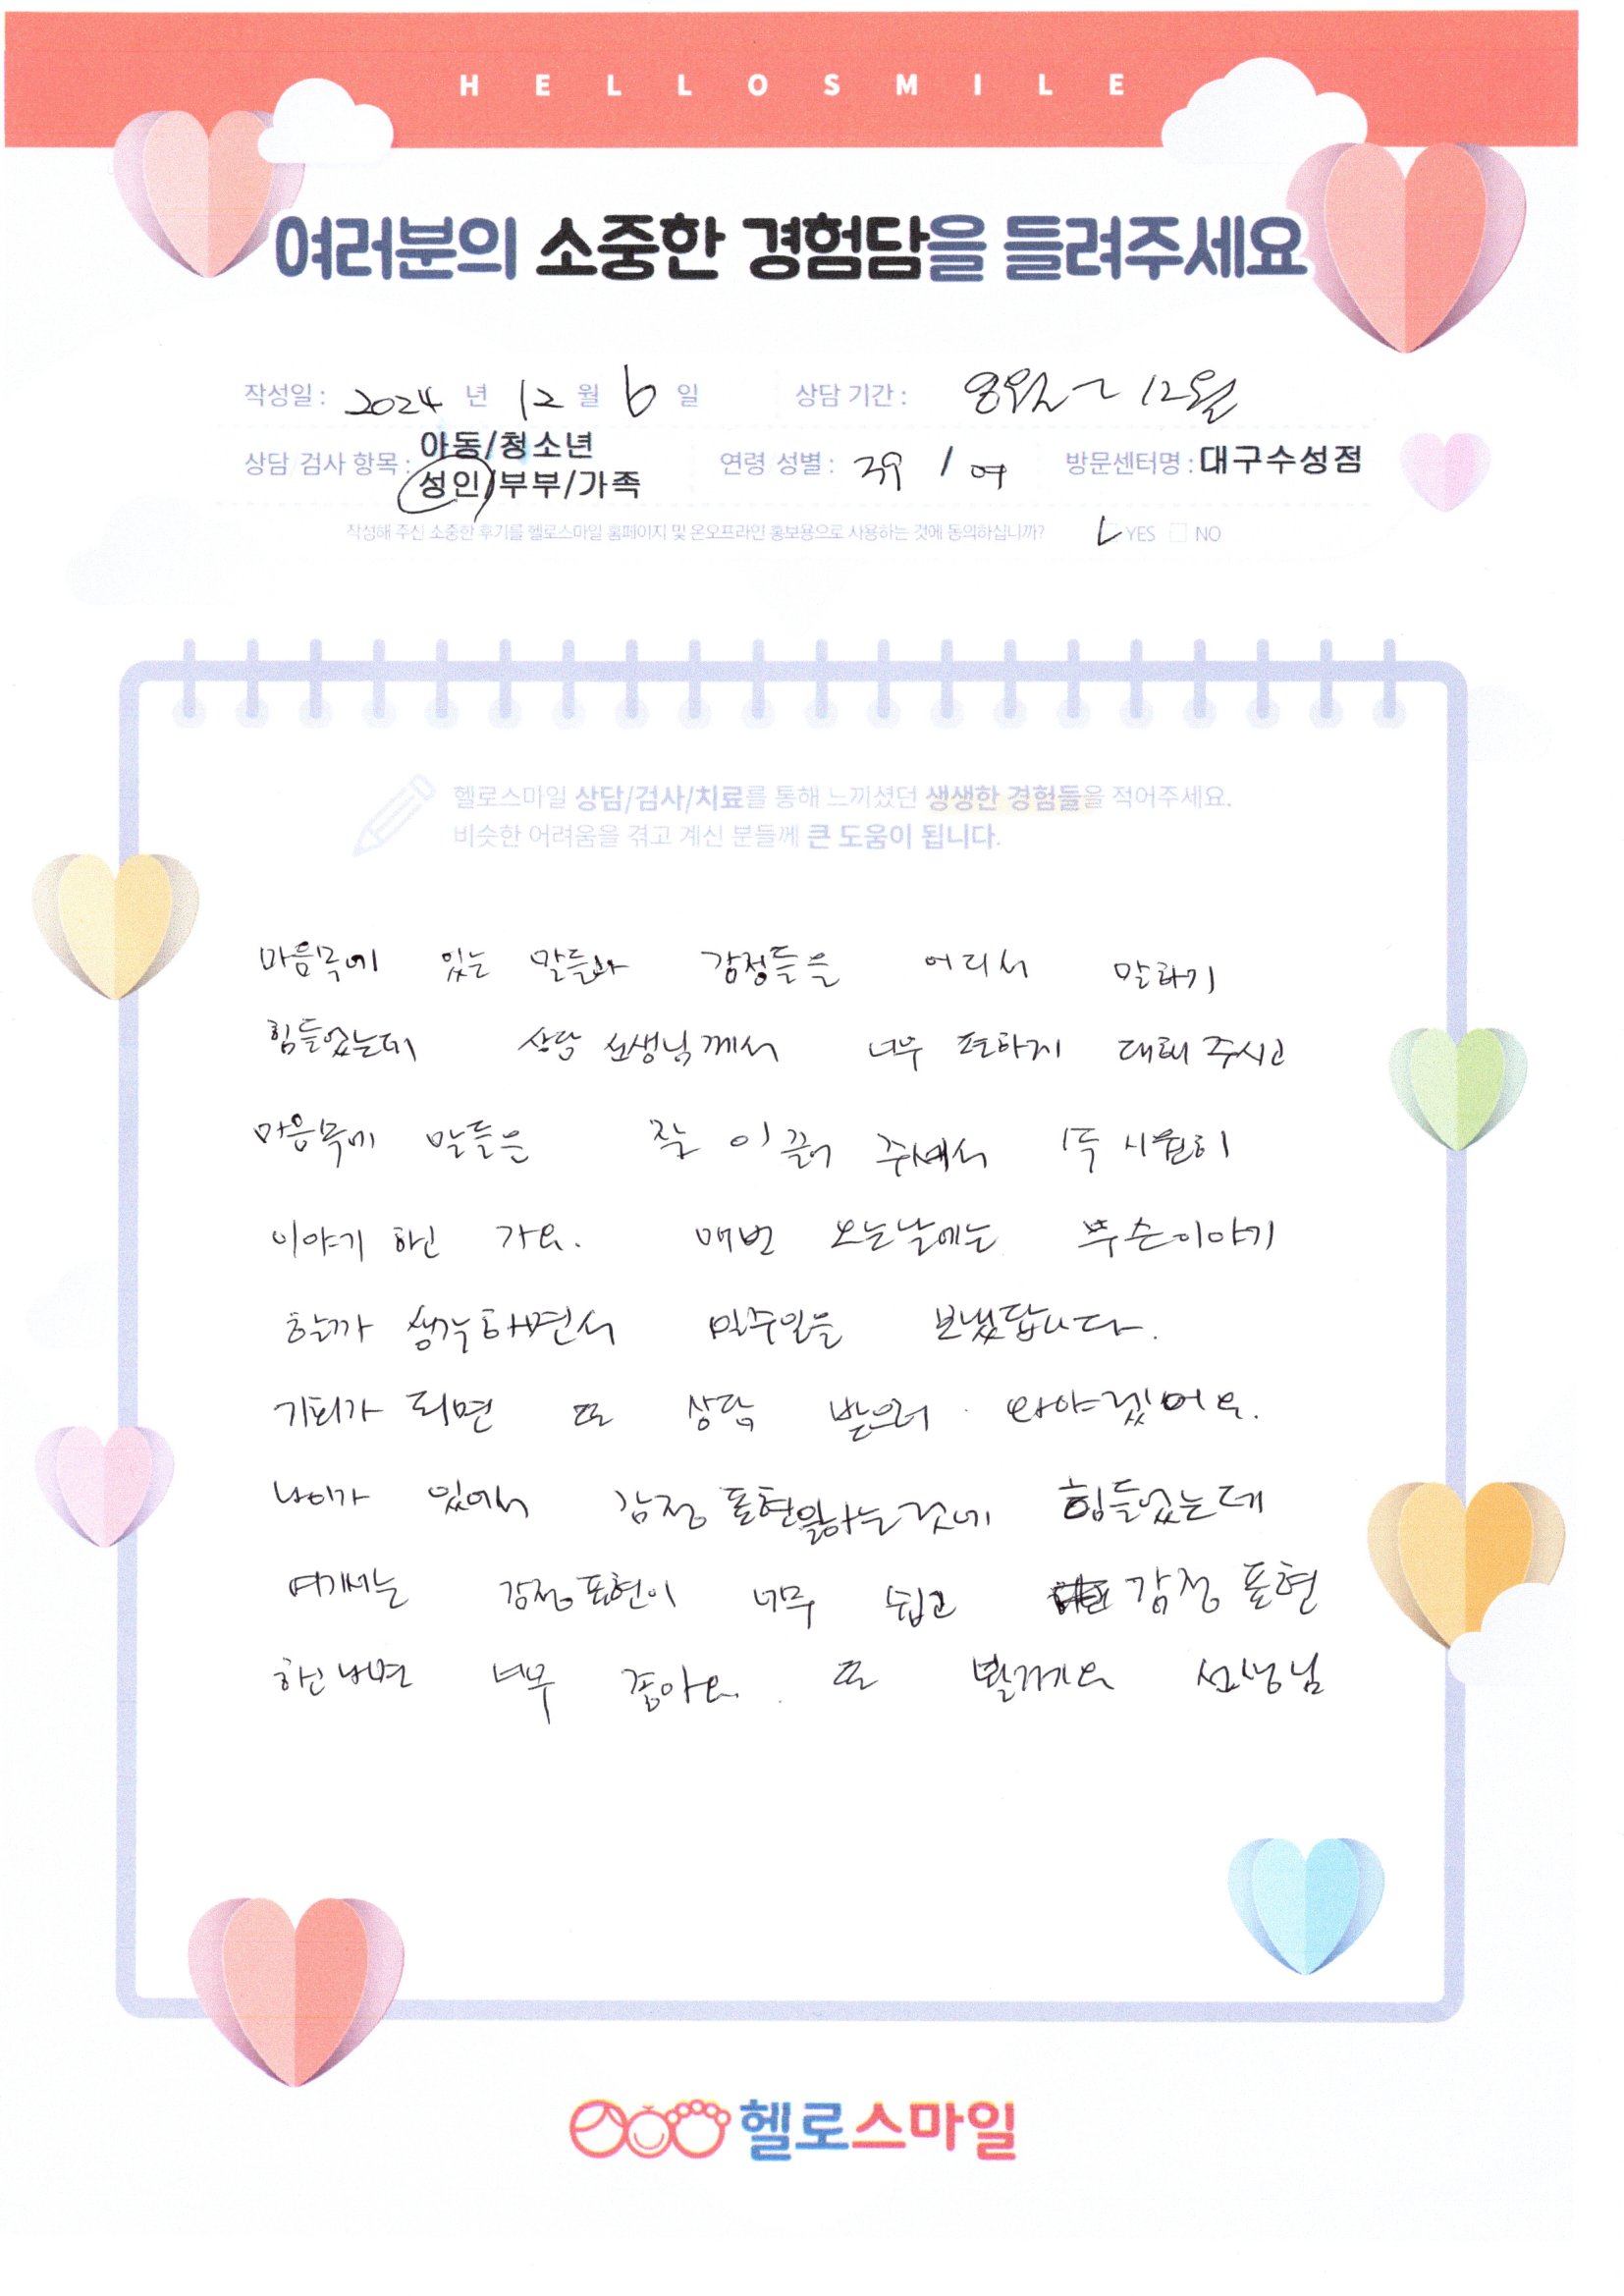 HELLOSMILE
여러분의 소중한 경험담을 들려주세요
작성일 : 2024 년 12 월 6 일 상담 기간 : 8월 ~ 12월
아동/청소년
상담 검사 항목 : 성인/부부/가족 연령 성별 : 39 / 여 방문센터명 : 대구수성점
작성해 주신 소중한 후기를 헬로스마일 홈페이지 및 온오프라인 홍보용으로 사용하는 것에 동의하십니까? YES NO
헬로스마일 상담/검사/치료를 통해 느끼셨던 생생한 경험들을 적어주세요.
비슷한 어려움을 겪고 계신 분들께 큰 도움이 됩니다.
마음속에 있는 말들과 감정들을 어디서 말하기
힘들었는데 상담 선생님께서 너무 편하게 대해 주시고
마음속에 말들은 잘 이끌어 주셔서 속 시원히
이야기 하고 가요. 매번 오는날에는 무슨이야기
할까 생각하면서 일주일을 보냈답니다.
기회가 되면 또 상담 받으러 와야겠어요.
나이가 있어서 감정 표현 하는것이 힘들었는데
여기서는 감정표현이 너무 쉽고 감정 표현
하고 나면 너무 좋아요. 또 뵐께요 선생님
헬로스마일